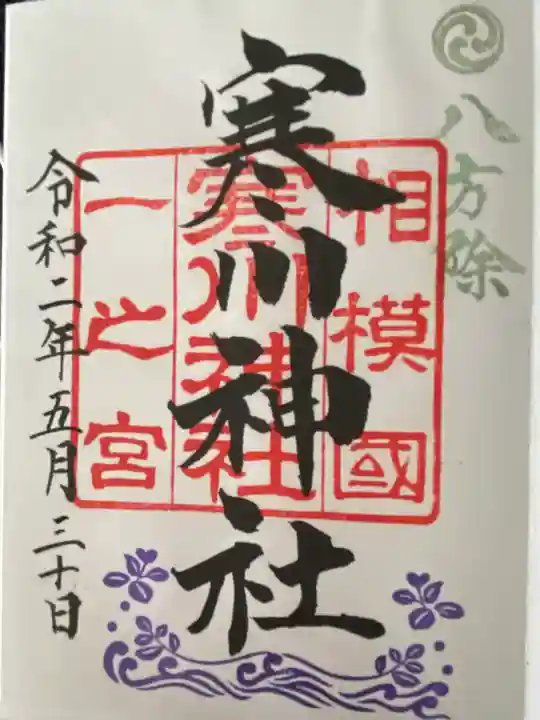 八方除
相模國
寒川神社
一之宮
寒川神社
令和二年五月三十日